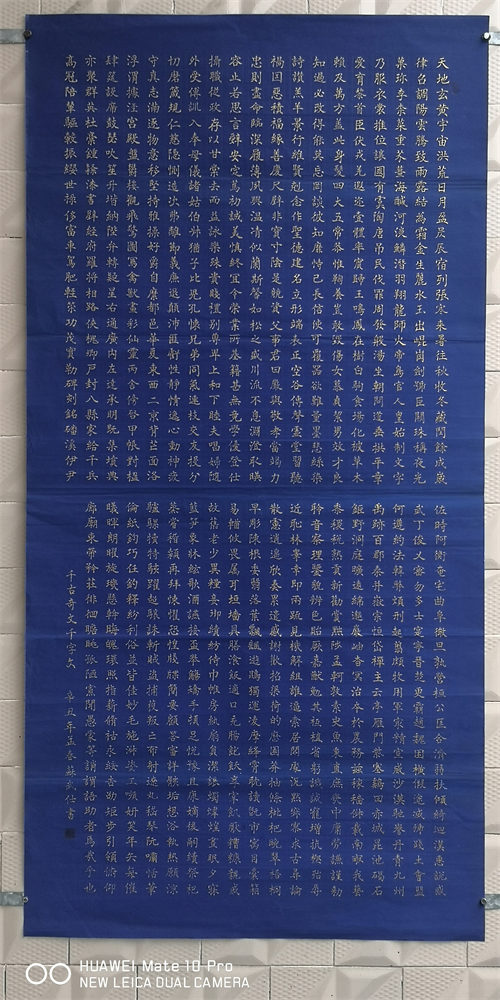 天地玄黃宇宙洪荒日月盈昃辰宿列張寒来暑往秋收冬藏閏餘成歲
律召調陽雲騰致雨露結為霜金生麗水玉出崐崗劍號巨闕珠稱夜光
菓珍李柰菜重芥薑海鹹河淡鱗潛羽翔龍師火帝鳥官人皇始制文字
乃服衣裳推位讓國有虞陶唐吊民伐罪周發殷湯坐朝問道垂拱平章
愛育黎首臣伏戎羌遐邇壹體率賓歸王鳴鳳在樹白駒食場化被草木
賴及萬方蓋此身髮四大五常恭惟鞠養豈敢毀傷女慕貞絜男效才良
知過必改得能莫忘罔談彼短靡恃己長信使可覆器欲難量墨悲絲染
詩讚羔羊景行維賢剋念作聖德建名立形端表正空谷傳聲虛堂習聽
禍因惡積福緣善慶尺璧非寶寸陰是競資父事君曰嚴與敬孝當竭力
忠則盡命臨深履薄夙興溫清似蘭斯馨如松之盛川流不息淵澄取暎
容止若思言辭安定篤初誠美慎終宜令榮業所基籍甚無竟學優登仕
攝職從政存以甘棠去而益詠樂殊貴賤禮別尊卑上和下睦夫唱婦隨
外受傅訓入奉母儀諸姑伯叔猶子比兒孔懷兄弟同氣連枝交友投分
切磨箴規仁慈隱惻造次弗離節義廉退顛沛匪虧性靜情逸心動神疲
守真志滿逐物意移堅持雅操好爵自縻都邑華夏東西二京背芒面洛
浮渭據涇宮殿盤鬱樓觀飛驚圖寫禽獸畫彩仙靈丙舍傍啓甲帳對楹
肆筵設席鼓瑟吹笙升階納陛弁轉疑星右通廣內左達承明既集墳典
亦聚群英杜稾鍾隸漆書壁經府羅將相路俠槐卿戶封八縣家給千兵
高冠陪輦驅轂振纓世祿侈富車駕肥輕策功茂實勒碑刻銘磻溪伊尹
佐時阿衡奄宅曲阜微旦孰營桓公匡合濟弱扶傾綺迴漢惠說感
武丁俊乂密勿多士寔寧晉楚更霸趙魏困橫假途滅虢踐土會盟
何遵約法韓弊煩刑起翦頗牧用軍最精宣威沙漠馳譽丹青九州
禹跡百郡秦并嶽宗恒岱禪主云亭雁門紫塞雞田赤城昆池碣石
鉅野洞庭曠遠綿邈巖岫杳冥治本於農務茲稼穡俶載南畝我藝
黍稷稅熟貢新勸賞黜陟孟軻敦素史魚秉直庶幾中庸勞謙謹勑
聆音察理鑒貌辨色貽厥嘉猷勉其祗植省躬譏誡寵增抗極殆辱
近恥林皋幸即兩疏見機解組誰逼索居閑處沉默寂寥求古尋論
散慮逍遙欣奏累遣慼謝歡招渠荷的歷園莽抽條枇杷晚翠梧桐
早彫陳根委翳落葉飄颻遊鵾獨運凌摩絳霄耽讀翫市寓目囊箱
易輶攸畏屬耳垣墻具膳湌飯適口充腸飽飫烹宰飢厭糟糠親戚
故舊老少異糧妾御績紡侍巾帷房紈扇員潔銀燭煒煌晝眠夕寐
藍笋象牀絃歌酒讌接杯舉觴矯手頓足悅豫且康嫡後嗣續祭祀
蒸嘗稽顙再拜悚懼恐惶牋牒簡要顧答審詳骸垢想浴執熱願涼
驢騾犢特駭躍超驤誅斬賊盜捕獲叛亡布射遼丸嵇琴阮嘯恬筆
倫紙鈞巧任釣釋紛利俗並皆佳妙毛施淑姿工嚬妍笑年矢每催
曦暉朗曜璇璣懸斡晦魄環照指薪脩祜永綏吉劭矩步引領俯仰
廊廟束帶矜莊徘徊瞻眺孤陋寡聞愚蒙等誚謂語助者焉哉乎也
千古奇文千字文 辛丑年孟春蘇武仕書
HUAWEI Mate 10 Pro
NEW LEICA DUAL CAMERA